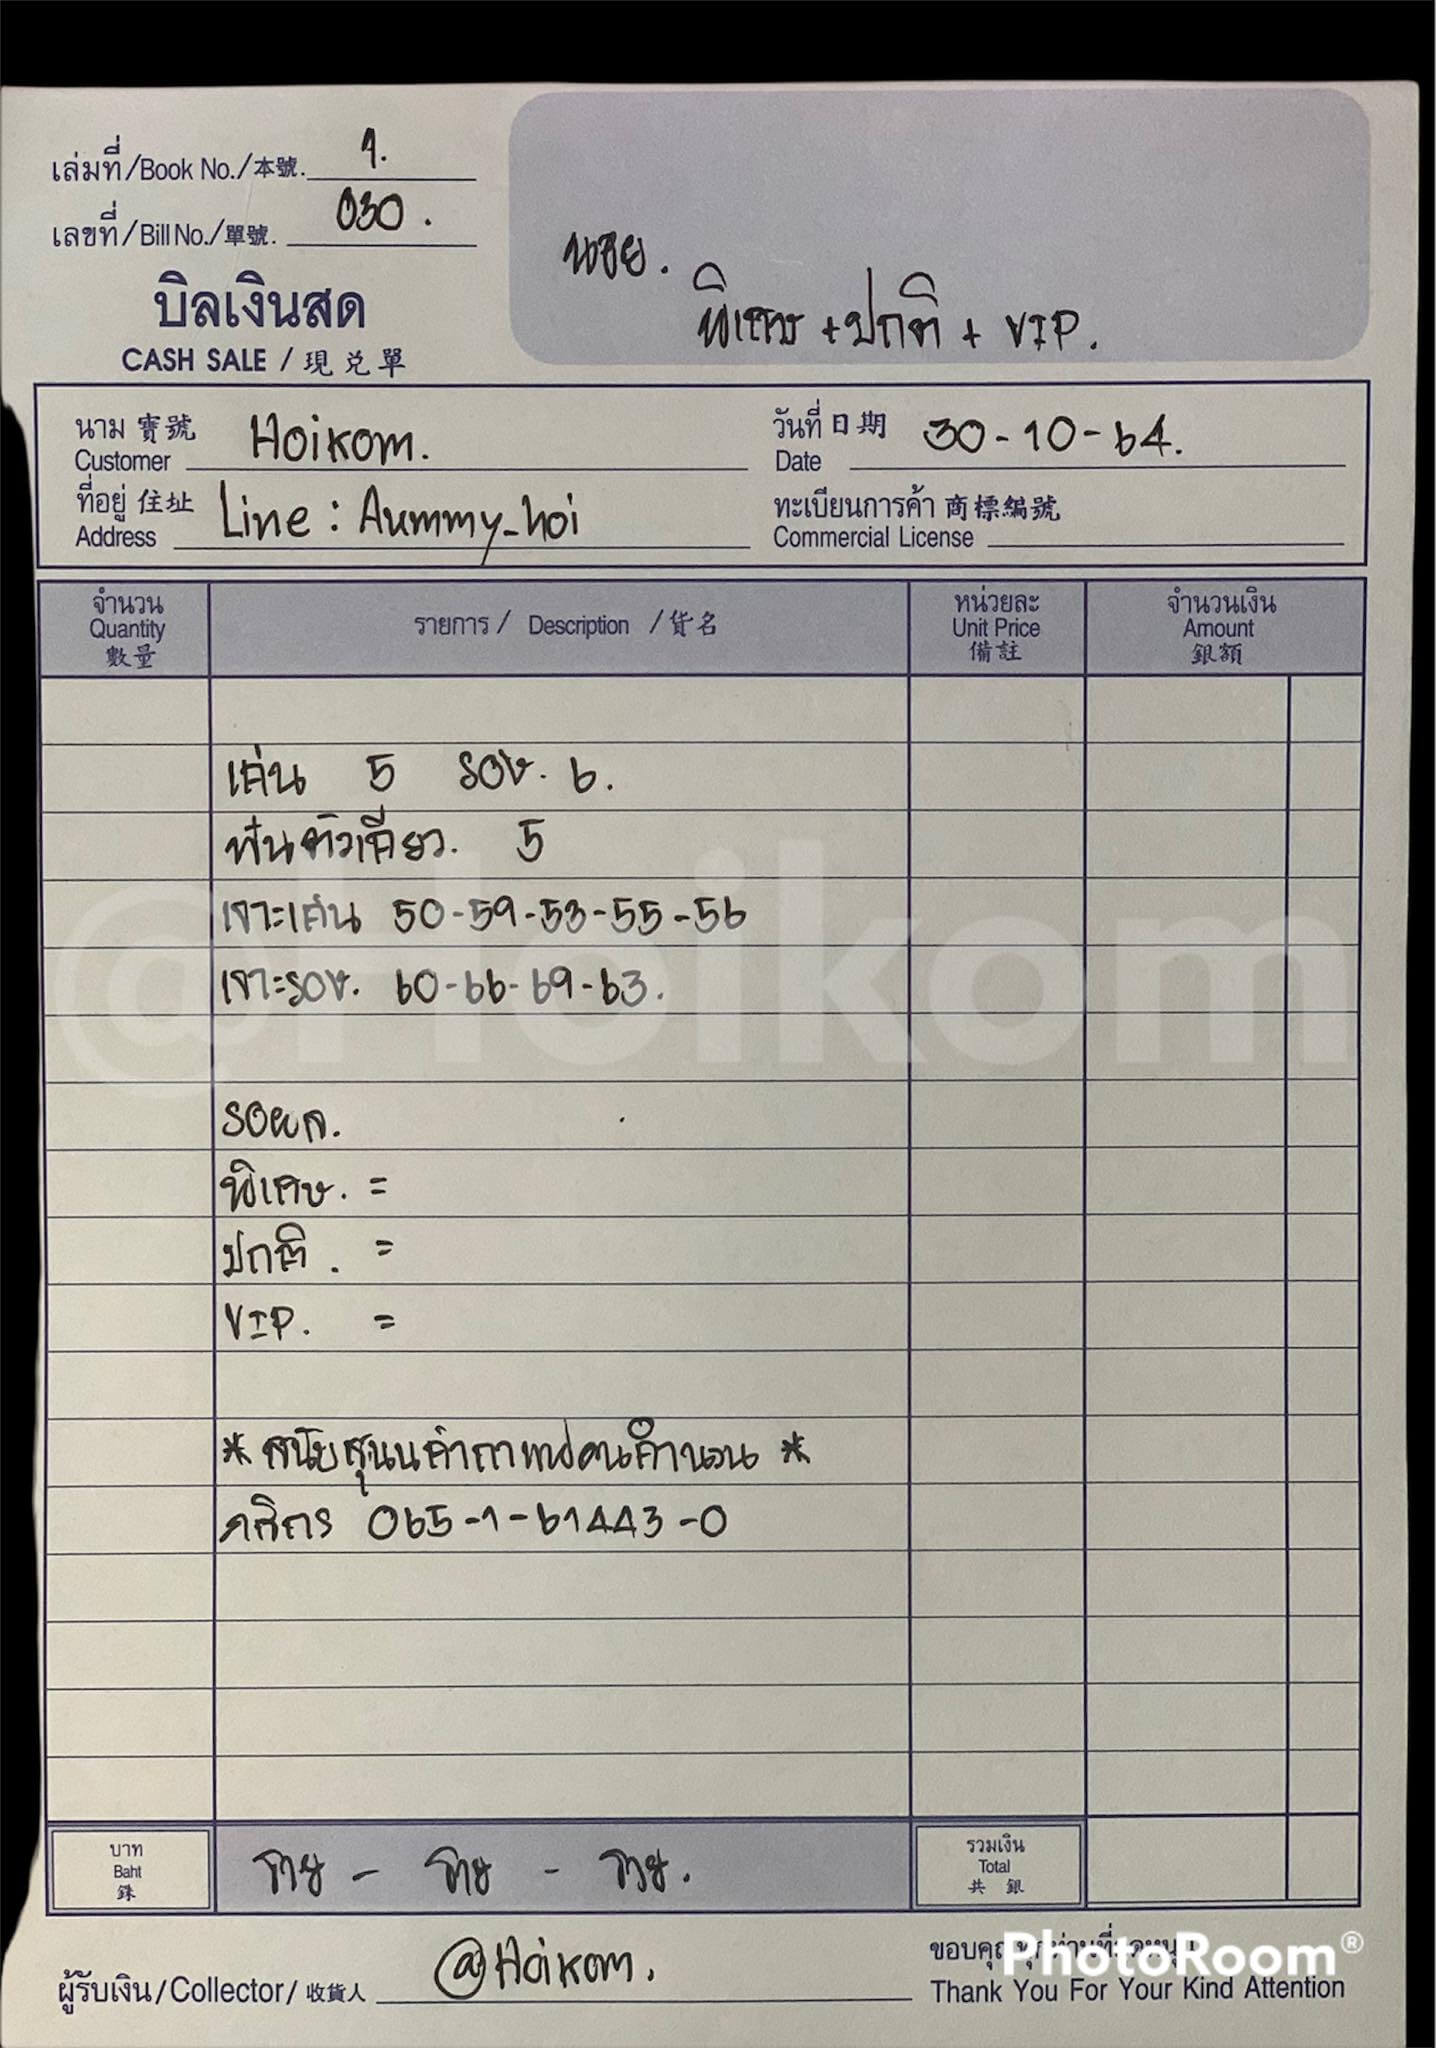 เล่มที่/Book No./本號. 1.
เลขที่/Bill No./單號. 030.
บิลเงินสด
CASH SALE / 現兌單
นอย.
พิเศษ + ปกติ + VIP.
นาม 寶號 Customer Hoikom.
วันที่ 日期 Date 30-10-64.
ที่อยู่ 住址 Address Line : Aummy_hoi
ทะเบียนการค้า 商標編號 Commercial License
จำนวน Quantity 數量
รายการ / Description / 貨名
หน่วยละ Unit Price 備註
จำนวนเงิน Amount 銀額
เด่น 5 รอง. 6.
ฟันตัวเดียว. 5
เจาะเด่น 50-59-53-55-56
เจาะรอง. 60-66-69-63.
@Hoikom
รอผล.
พิเศษ. =
ปกติ. =
VIP. =
* สนับสนุนค่ากาแฟคนคำนวน *
กสิกร 065-1-61443-0
บาท Baht 銖
รวย - รวย - รวย.
รวมเงิน Total 共銀
ผู้รับเงิน/Collector/收貨人 @Hoikom.
ขอบคุณทุกท่านที่
PhotoRoom®
Thank You For Your Kind Attention